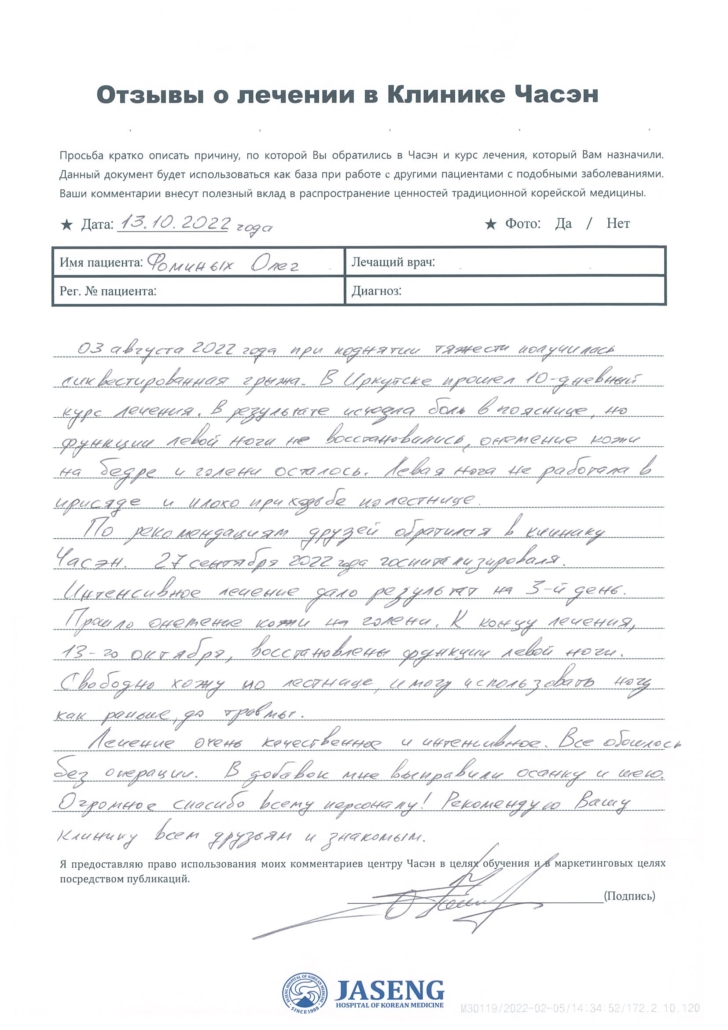 Отзывы о лечении в Клинике Часэн
Просьба кратко описать причину, по которой Вы обратились в Часэн и курс лечения, который Вам назначили.
Данный документ будет использоваться как база при работе с другими пациентами с подобными заболеваниями.
Ваши комментарии внесут полезный вклад в распространение ценностей традиционной корейской медицины.
★ Дата: 13.10.2022 года ★ Фото: Да / Нет
Имя пациента: Фоминых Олег Лечащий врач:
Рег. № пациента: Диагноз:
03 августа 2022 года при поднятии тяжести получилась
сиквестированная грыжа. В Иркутске прошел 10-дневный
курс лечения. В результате исчезла боль в пояснице, но
функции левой ноги не восстановились, онемение кожи
на бедре и голени осталось. Левая нога не работала в
присяде и плохо при ходьбе по лестнице.
По рекомендациям друзей обратился в клинику
Часэн. 27 сентября 2022 года госпитализировался.
Интенсивное лечение дало результат на 3-й день.
Прошло онемение кожи на голени. К концу лечения,
13-го октября, восстановлены функции левой ноги.
Свободно хожу по лестнице, и могу использовать ногу
как раньше, до травмы.
Лечение очень качественное и интенсивное. Все обошлось
без операции. В добавок мне выправили осанку и шею.
Огромное спасибо всему персоналу! Рекомендую Вашу
клинику всем друзьям и знакомым.
Я предоставляю право использования моих комментариев центру Часэн в целях обучения и в маркетинговых целях
посредством публикаций.
(Подпись)
JASENG
HOSPITAL OF KOREAN MEDICINE
SINCE 1990
M30119/2022-02-05/14:34:52/172.2.10.120